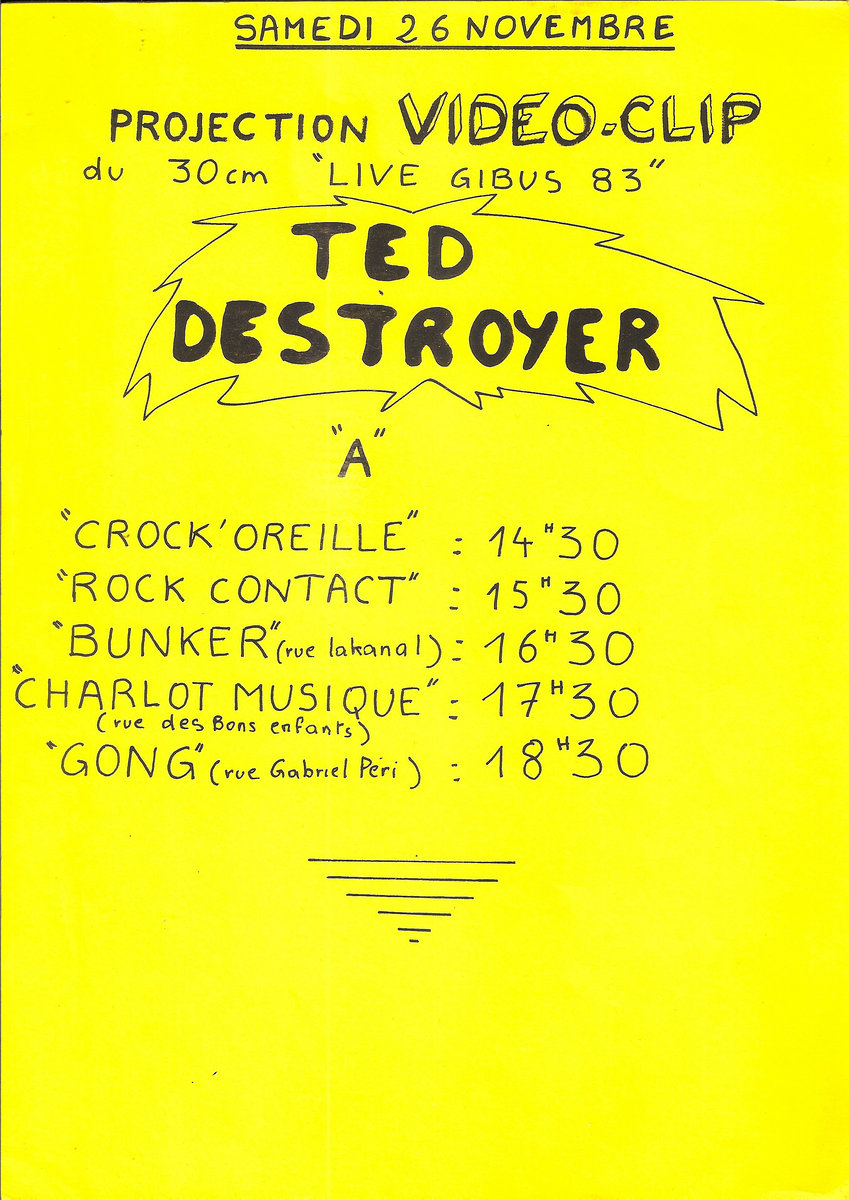 SAMEDI 26 NOVEMBRE
PROJECTION VIDEO-CLIP
du 30cm "LIVE GIBUS 83"
TED
DESTROYER
"A"
"CROCK'OREILLE" : 14H30
"ROCK CONTACT" : 15H30
"BUNKER" (rue lakanal) : 16H30
"CHARLOT MUSIQUE" : 17H30
(rue des Bons enfants)
"GONG" (rue Gabriel Péri) : 18H30